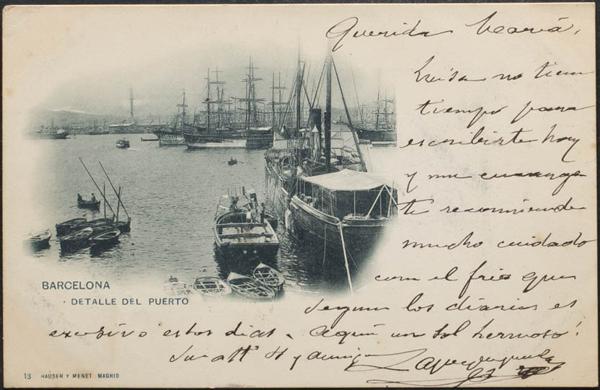 Querida María,
Luisa no tiene
tiempo para
escribirte hoy
y me encarga
te recomiende
mucho cuidado
con el frío que
segun los diarios es
excesivo estos dias. Aquí un sol hermoso!
Su att. y amigo
BARCELONA
· DETALLE DEL PUERTO
13 HAUSER Y MENET. MADRID